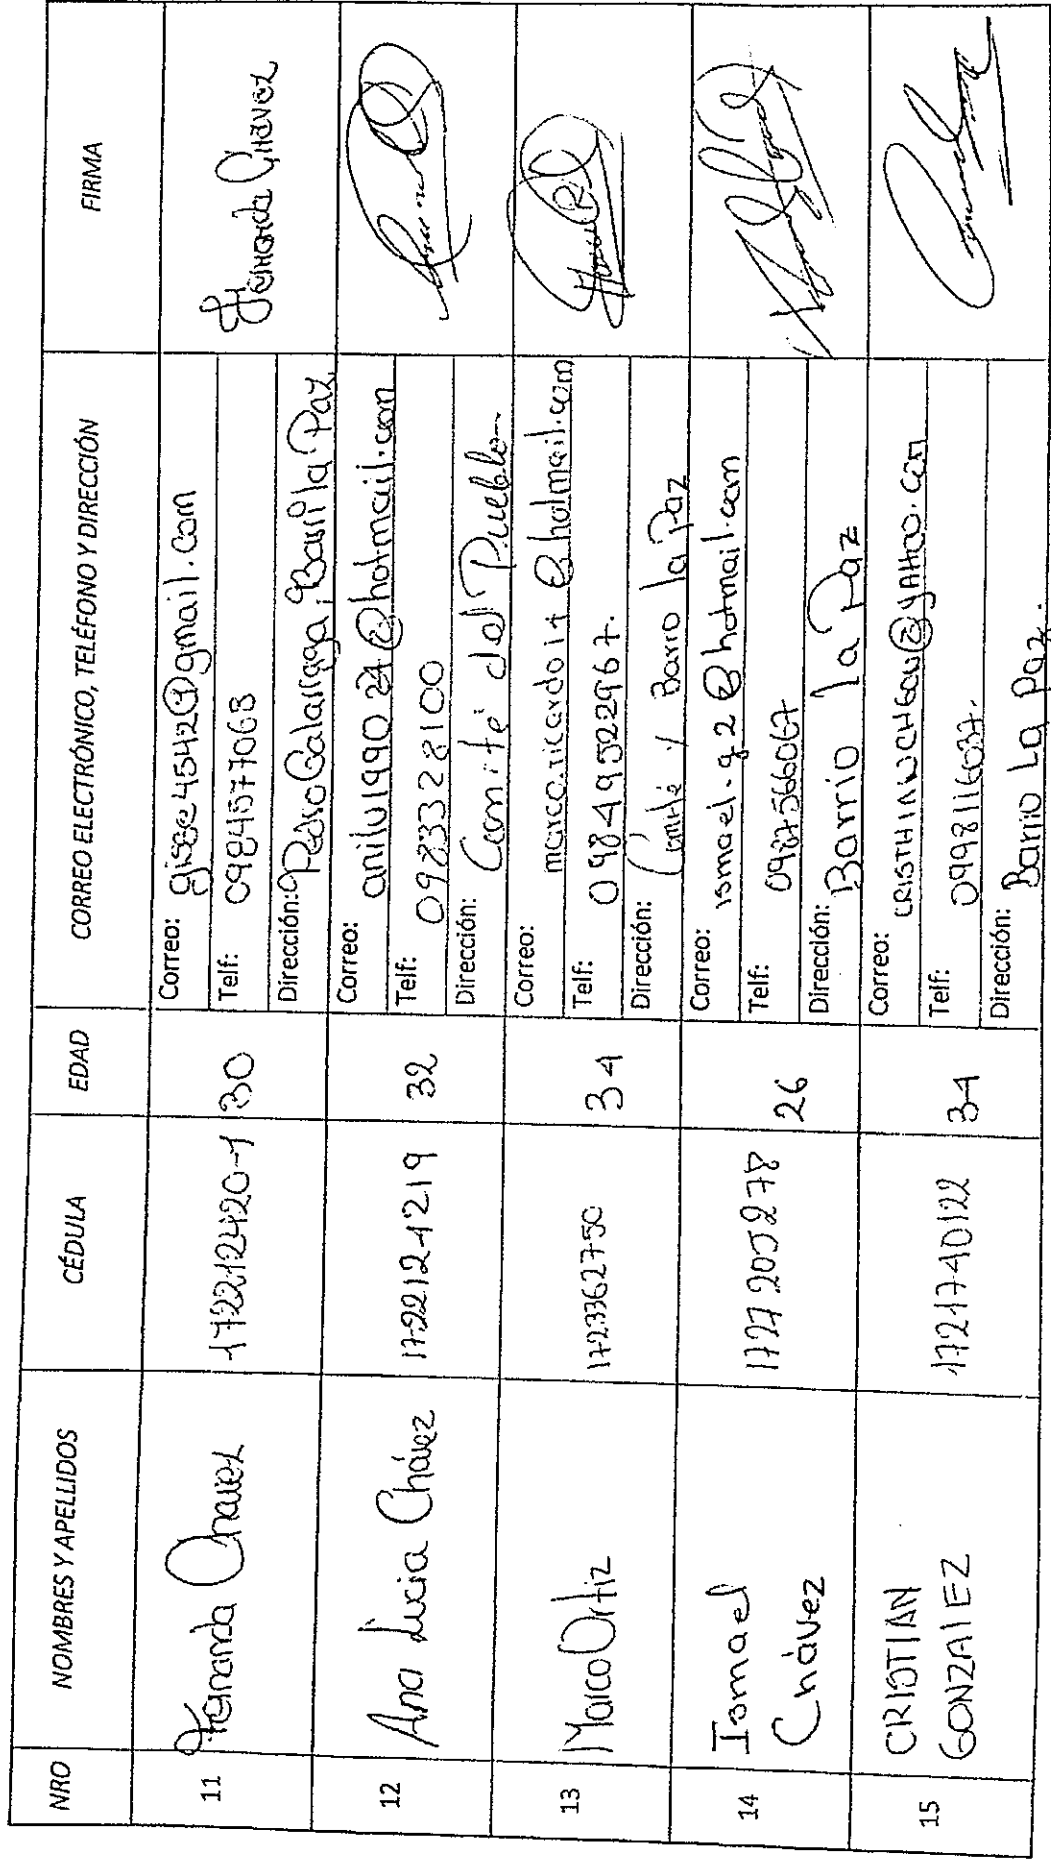 NRO NOMBRES Y APELLIDOS CÉDULA EDAD CORREO ELECTRÓNICO, TELÉFONO Y DIRECCIÓN FIRMA
11 Fernanda Chavez 172212420-1 30 Correo: gisse4542@gmail.com Fernanda Chavez
Telf: 0984577063
Dirección: Pedro Galarraga, Barri la Paz
12 Ana Lucia Chávez 1722124219 32 Correo: anilu199024@hotmail.com
Telf: 0983328100
Dirección: Comité del Pueblo
13 Marco Ortiz 1723362750 34 Correo: marco.ricardo14@hotmail.com
Telf: 09849522967.
Dirección: Comité y Barro la Paz
14 Ismael Chávez 1727205278 26 Correo: ismael.g2@hotmail.com
Telf: 0987566067
Dirección: Barrio la Paz
15 CRISTIAN GONZALEZ 1721740122 34 Correo:
Telf: 0998116037.
Dirección: Barrio La Paz.